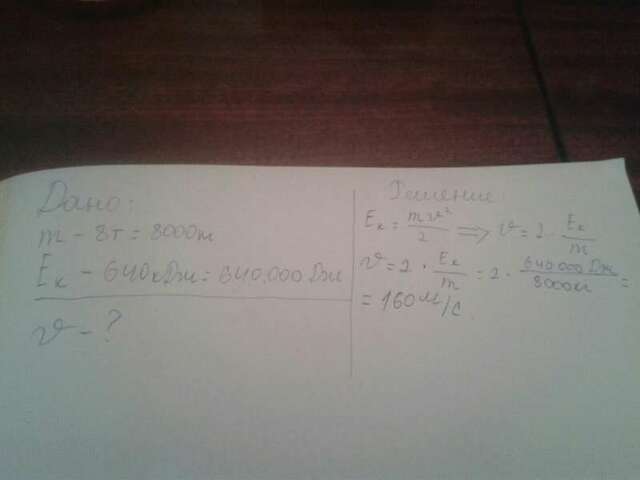 Дано:
m - 8т = 8000кг
Eк - 640кДж = 640.000 Дж
v - ?
Решение:
Eк = mv²/2 => v = 2 · Eк/m
v = 2 · Eк/m = 2 · 640 000 Дж/8000кг =
= 160 м/с.